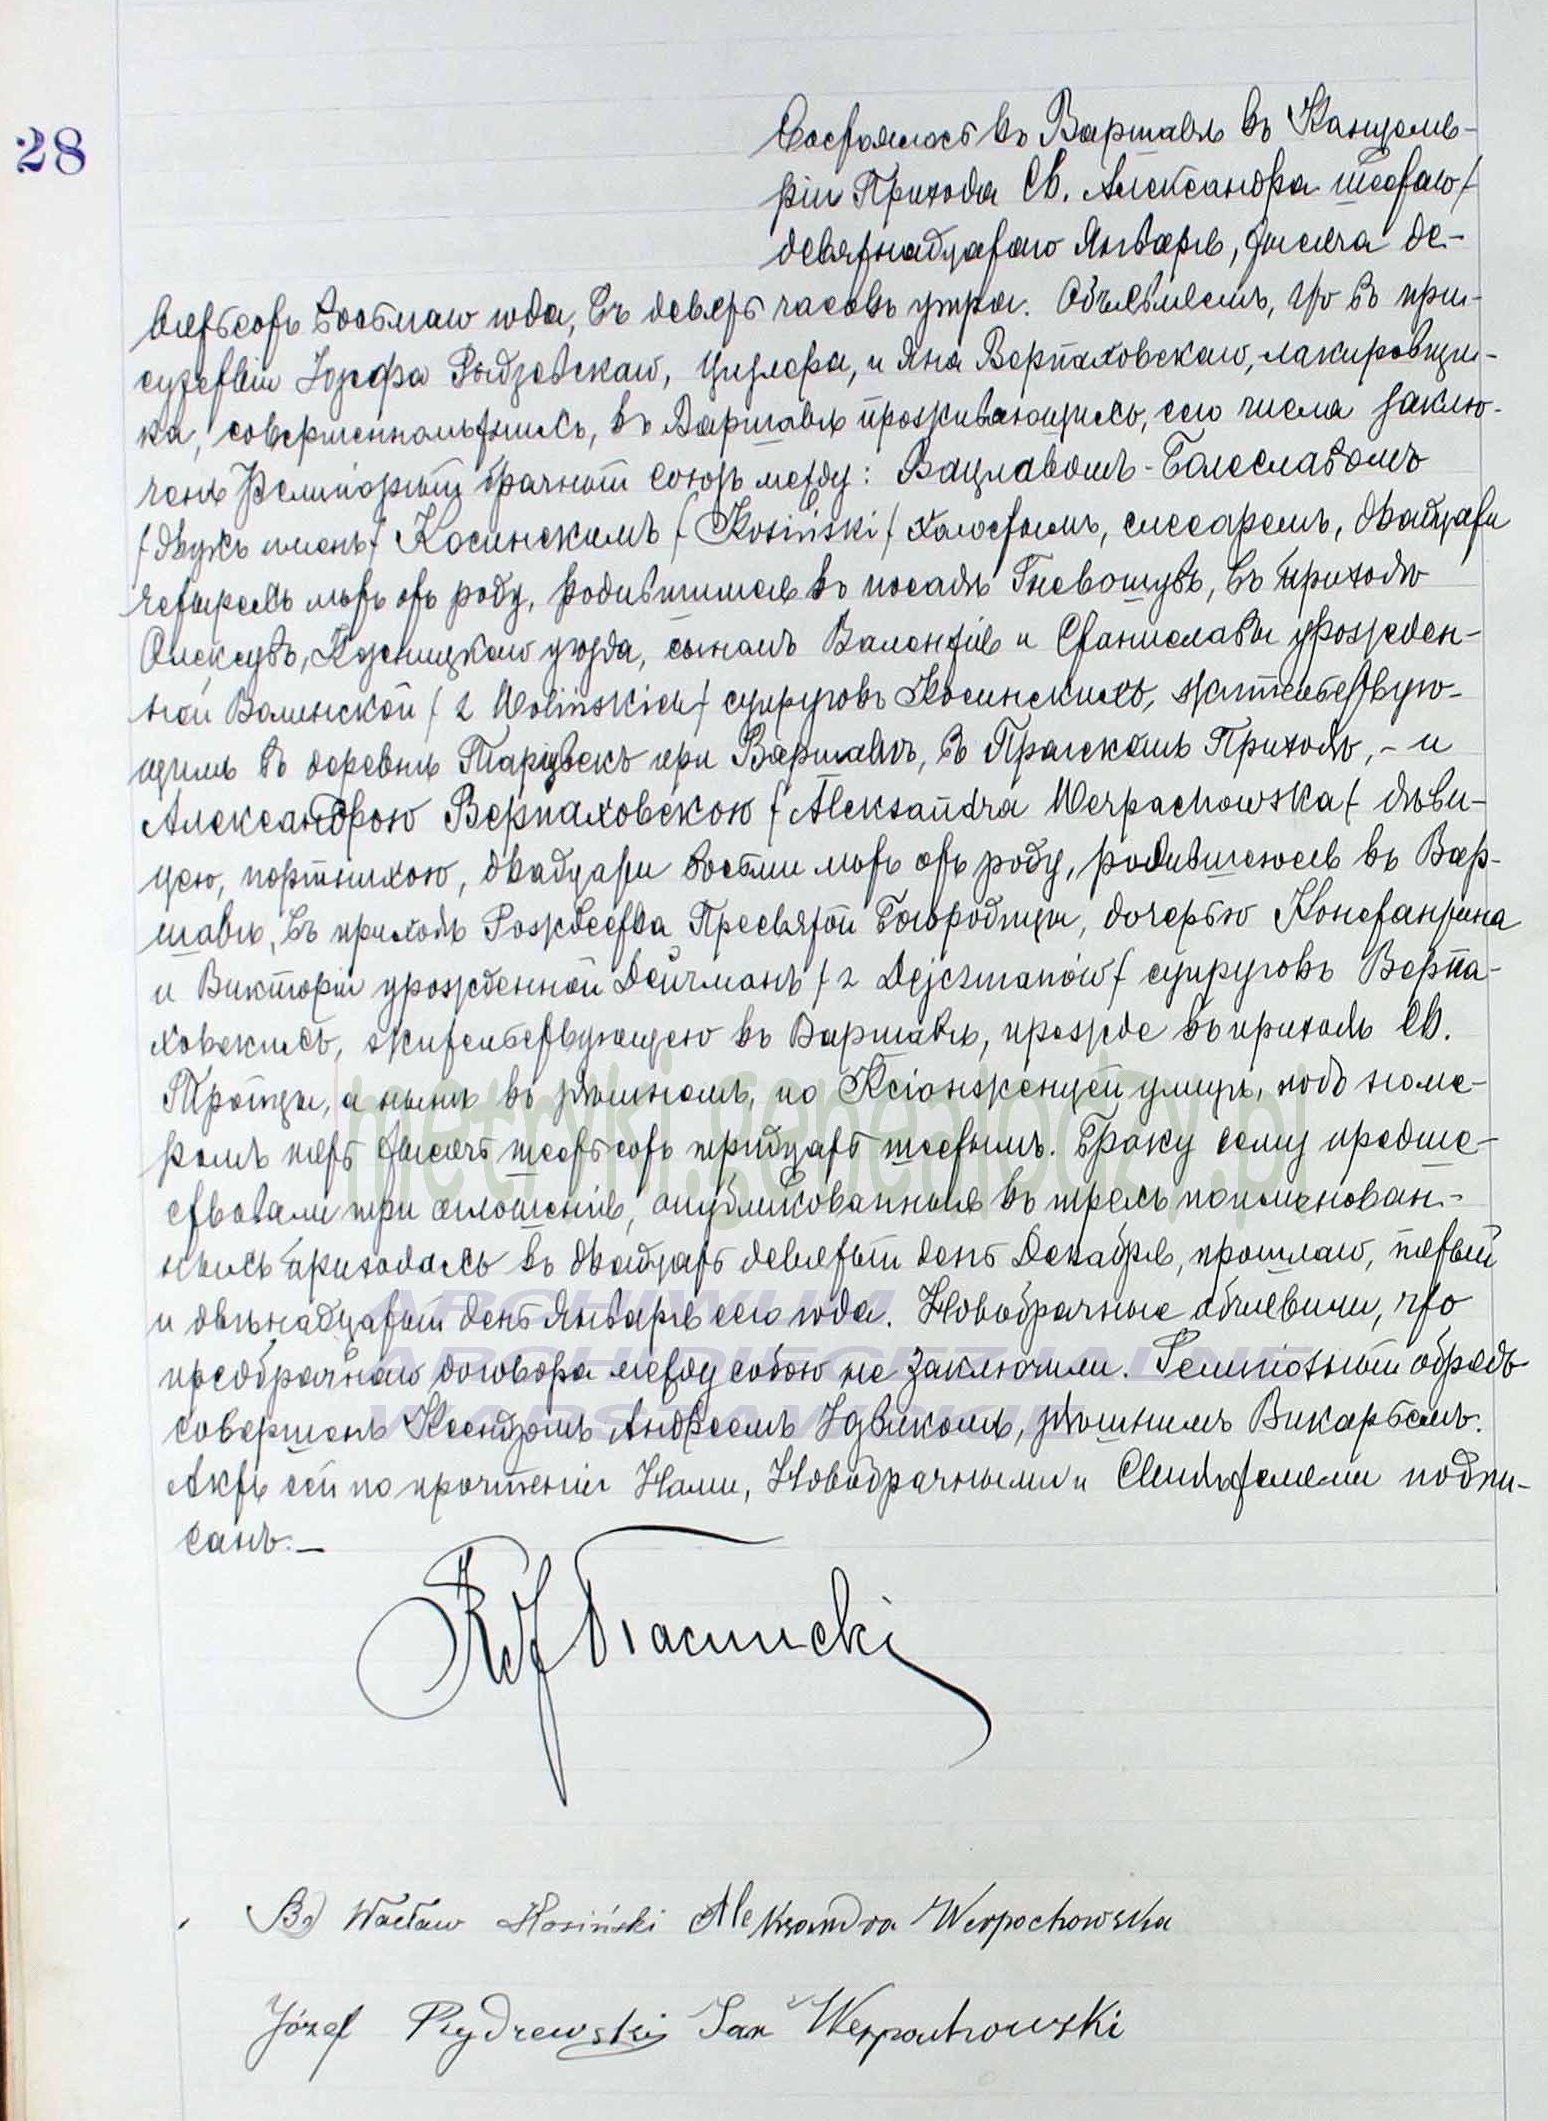 28
Состоялось въ Варшавѣ въ Канцеля-
ріи Прихода Св. Александра шестаго /
девятнадцатаго Января, тысяча де-
вятьсотъ восьмаго года, въ девять часовъ утра. Объявляемъ, что въ при-
сутствіи Юзефа Рыдзевскаго, и Яна Верпаховскаго, лакировщи-
ка, совершеннолѣтнихъ, въ Варшавѣ проживающихъ, сего числа заклю-
ченъ религіозный брачный союзъ между: Вацлавомъ-Болеславомъ
/ двухъ именъ / Косинскимъ / Kosiński / холостымъ, слесаремъ, двадцати
четырехъ лѣтъ отъ роду, родившимся въ посадѣ Гневошувъ, въ приходѣ
Олексувъ, Козеницкаго уѣзда, сыномъ Валентія и Станиславы урожден-
ной Волинской / z Wolińskich / супруговъ Косинскихъ, жительствую-
щимъ въ деревнѣ Таргувекъ при Варшавѣ, въ Пражскомъ Приходѣ, - и
Александрою Верпаховскою / Aleksandra Werpachowska / дѣви-
цею, портнихою, двадцати восьми лѣтъ отъ роду, родившеюся въ Вар-
шавѣ, въ приходѣ Рождества Пресвятой Богородицы, дочерью Константина
и Викторіи урожденной Дейчманъ / z Dejczmanów / супруговъ Верпа-
ховскихъ, жительствующею въ Варшавѣ, прежде въ приходѣ Св.
Троицы, а нынѣ въ здѣшнемъ, по Ксіонженцей улицѣ, подъ номе-
ромъ пять тысячъ шестьсотъ тридцать шестымъ. Браку сему предше-
ствовали три оглашенія, опубликованныя въ трехъ поименован-
ныхъ приходахъ въ двадцать девятый день Декабря, прошлаго, пятый
и двѣнадцатый день Января сего года. Новобрачные объявили, что
предбрачнаго договора между собою не заключили. Религіозный обрядъ
совершенъ Ксендзомъ Андреемъ здѣшнимъ Викаріемъ.
Актъ сей по прочтеніи Нами, Новобрачными и Свидѣтелями подпи-
санъ. —
Wacław Kosiński Aleksandra Werpachowska
Józef Rydzewski Jan Werpachowski
metryki.genealodzy.pl
ARCHIWUM
ARCHIDIECEZJALNE
WARSZAWSKIE